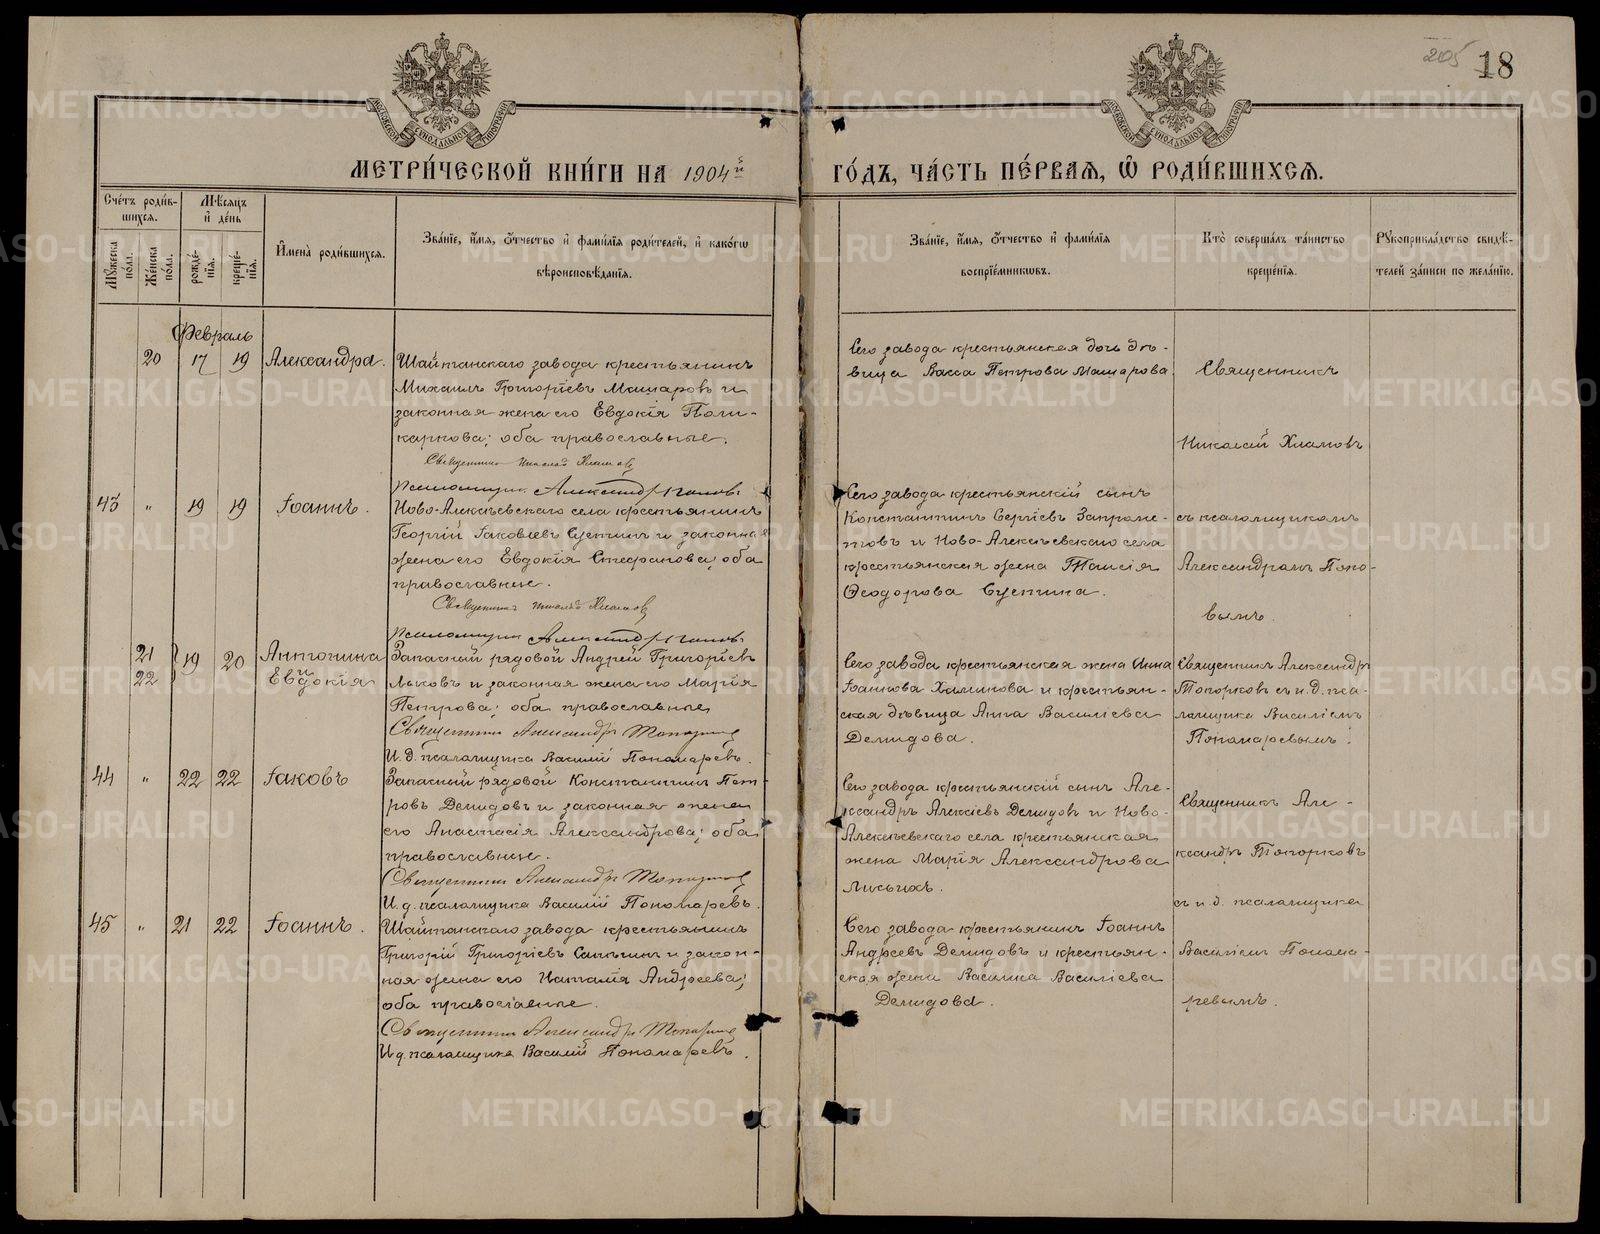 205 18
МЕТРИ́ЧЕСКОЙ КНИ́ГИ НА 1904й ГО́ДЪ, ЧА́СТЬ ПЕ́РВАЯ, Ѽ РОДИ́ВШИХСЯ.
Сче́тъ роди́в-
шихся.
Мꙋ́жеска по́ла.
Же́нска по́ла.
Мѣ́сяцъ
и҆ де́нь
рожде́нїя.
креще́нїя.
И҆мена̀ роди́вшихся.
Зва́нїе, и҆́мя, ѻ҆́тчество и҆ фами́лїя роди́телей, и҆ како́гѡ
вѣроисповѣ́данїя.
Зва́нїе, и҆́мя, ѻ҆́тчество и҆ фами́лїя
воспрїе́мникѡвъ.
Кто̀ соверша́лъ та́инство
креще́нїя.
Рꙋкоприкла́дство свидѣ́-
телей за́писи по жела́нїю.
Февраль
20 17 19 Александра.
Шайтанскаго завода крестьянинъ
Михаилъ Машаровъ и
законная жена его Евдокія Поли-
карпова; оба православные.
Священникъ Николай Хламовъ
Псаломщикъ Александръ Поповъ
Сего завода крестьянская дочь дѣ-
вица Васса Петрова Машарова
Священникъ
Николай Хламовъ
43 " 19 19 Іоаннъ.
Ново-Алексѣевскаго села крестьянинъ
Георгій Іаковлевъ и законная
жена его Евдокія Стефанова; оба
православные.
Священникъ Николай Хламовъ
Псаломщикъ Александръ Поповъ
Сего завода крестьянскій сынъ
Константинъ Сергіевъ
и Ново-Алексѣевскаго села
крестьянская жена Таисія
Ѳеодорова
съ псаломщикомъ
Александромъ Попо-
вымъ.
21
22 19 20 Антонина
и
Евдокія
Запасный рядовой Андрей Григоріевъ
Львовъ и законная жена его Марія
Петрова; оба православные
Священникъ Александръ Топорковъ
И.д. псаломщика Василій Пономаревъ.
Сего завода крестьянская жена Анна
Іоаннова и крестьян-
ская дѣвица Анна Василіева
Демидова.
Священникъ Александръ
Топорковъ съ и.д. пса-
ломщика Василіемъ
Пономаревымъ.
44 " 22 22 Іаковъ
Запасный рядовой Константинъ Пет-
ровъ Демидовъ и законная жена
его Анастасія Александрова; оба
православные.
Священникъ Александръ Топорковъ
И.д. псаломщика Василій Пономаревъ.
Сего завода крестьянскій сынъ Але-
ксандръ Алексіевъ Демидовъ и Ново-
Алексѣевскаго села крестьянская
жена Марія Александрова
Лисьихъ.
Священникъ Але-
ксандръ Топорковъ
съ и.д. псаломщика
45 " 21 22 Іоаннъ.
Шайтанскаго завода крестьянинъ
Григорій Григоріевъ и закон-
ная жена его Наталія Андреева;
оба православные.
Священникъ Александръ Топорковъ
И.д. псаломщика Василій Пономаревъ.
Сего завода крестьянинъ Іоаннъ
Андреевъ Демидовъ и крестьян-
ская жена Василіева
Демидова.
Василіемъ Понома-
ревымъ.